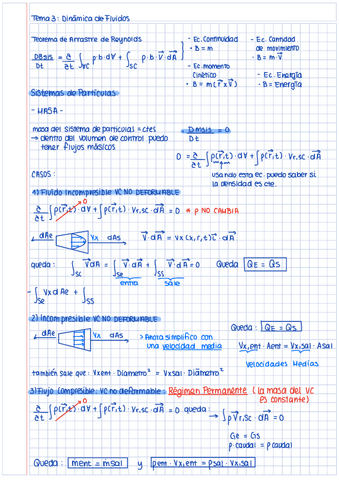 Tema 3: Dinámica de Fluidos
Teorema de Arrastre de Reynolds
DBsis/Dt = ∂/∂t ∫VC ρ·b·dV + ∫SC ρ·b·V⃗·dA⃗
- Ec. Continuidad
• B = m
- Ec. Cantidad de movimiento
• B = m·V⃗
- Ec. momento cinético
• B = m(r⃗×V⃗)
- Ec. Energía
• B = Energía
Sistemas de Partículas
- MASA -
masa del sistema de partículas = ctes
→ dentro del volumen de control puedo tener flujos másicos
Dmsis/Dt = 0
0 = ∂/∂t ∫ρ(r⃗,t)·dV + ∫ρ(r⃗,t)·Vr.sc·dA⃗
usando esta ec. puedo saber si la densidad es cte.
CASOS:
1) Fluido Incompresible VC NO DEFORMABLE
∂/∂t ∫ρ(r⃗,t)·dV + ∫ρ(r⃗,t)·Vr.sc·dA⃗ = 0 * ρ NO CAMBIA
0
dAe Vx dAs V⃗·dA⃗ = Vx(x,r,t)i⃗·dA⃗
queda: ∫SC V⃗dA⃗ = ∫Se V⃗·dA⃗ + ∫SS V⃗·dA⃗ = 0 Queda QE = QS
entra sale
-∫Se Vx dAe + ∫SS
2) Incompresible VC NO DEFORMABLE
Queda: QE = QS
dAe Vx dAs
→ Ahora simplifico con una velocidad media
Vx,ent·Aent = Vx,sal·Asal
Velocidades Medias
también sale que: Vxent·Diámetro² = Vxsal·Diámetro²
3) Flujo Compresible VC no deformable: Régimen Permanente (la masa del VC es constante)
0
∂/∂t ∫ρ(r⃗,t)·dV + ∫ρ(r⃗,t)·Vr.sc·dA⃗ = 0 queda:
→ ∫ρV⃗r.sc·dA⃗ = 0
Ge = Gs
ρ·caudal = ρ·caudal
Queda: ment = msal y ρent·Vx,ent = ρsal·Vx,sal